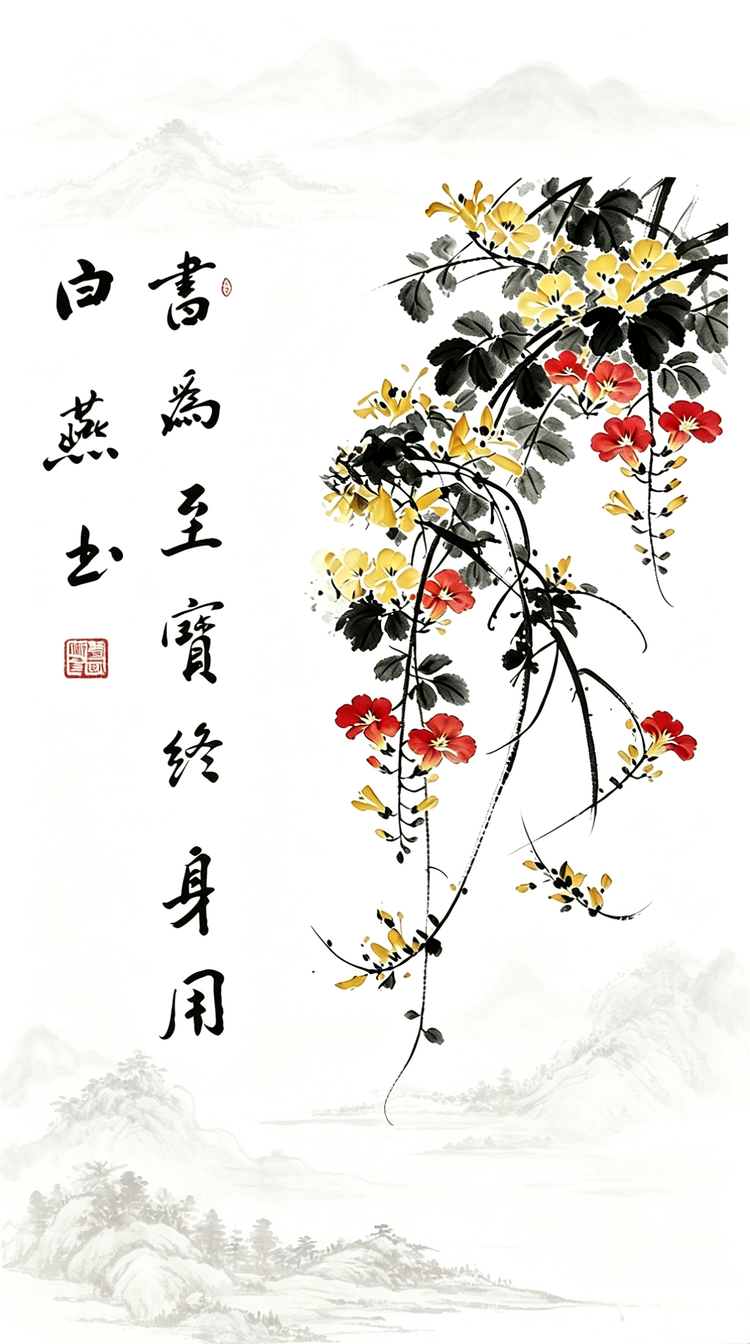 書為至寶終身用
白燕书